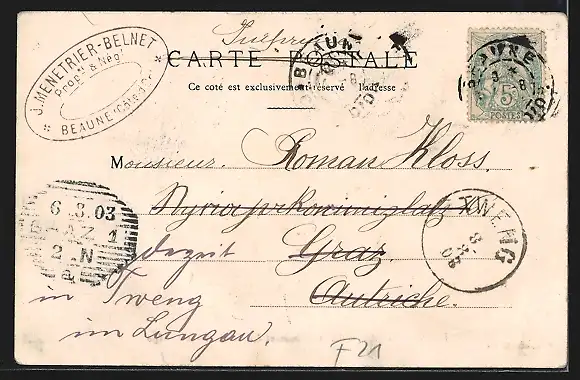 Imprimé
J. MENETRIER-BELNET
Propre & Négt
BEAUNE (Côte d'Or)
CARTE POSTALE
Ce coté est exclusivement réservé à l'adresse
BEAUNE
5
POSTES
Monsieur Roman Kloss.
6.3.03
GRAZ 1
2.N
derzeit Graz.
TWENG
8 3 03
in Tweng Autriche.
im Lungau.
F21